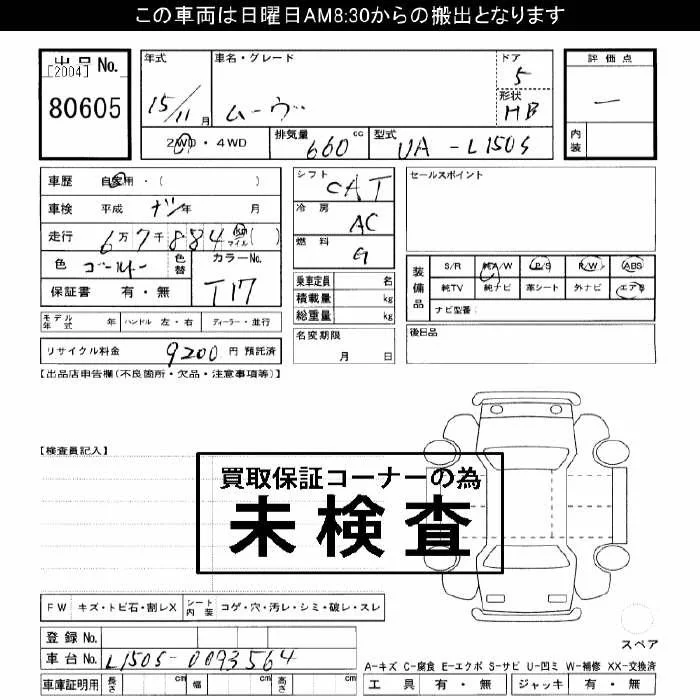 この車両は日曜日AM8:30からの搬出となります
出品 No.
[2004]
80605
年式
15/11 月
車名・グレード
ムーヴ
ドア
5
形状
HB
評価点
ー
内装
2WD・4WD
排気量 660 cc
型式 UA-L150S
車歴 自家用・( )
車検 平成 ナシ 年 月
走行 6万7千884 km マイル ( )
色 ゴールド
色替
カラーNo.
T17
保証書 有・無
シフト
CAT
冷房
AC
燃料
G
セールスポイント
装備品
S/R 純A/W P/S P/W ABS
純TV 純ナビ 革シート 外ナビ エアB
ナビ型番:
乗車定員 名
積載量 kg
総重量 kg
モデル年式 年 ハンドル 左・右 ディーラー・並行
名変期限
月 日
後日品
リサイクル料金 9200 円 預託済
【出品店申告欄(不良箇所・欠品・注意事項等)】
【検査員記入】
買取保証コーナーの為
未検査
FW キズ・トビ石・割レX シート内装 コゲ・穴・汚レ・シミ・破レ・スレ
スペア
登録 No.
車台 No. L150S-0093564
A-キズ C-腐食 E-エクボ S-サビ U-凹ミ W-補修 XX-交換済
車庫証明用 長さ cm 幅 cm 高さ cm
工具 有・無 ジャッキ 有・無